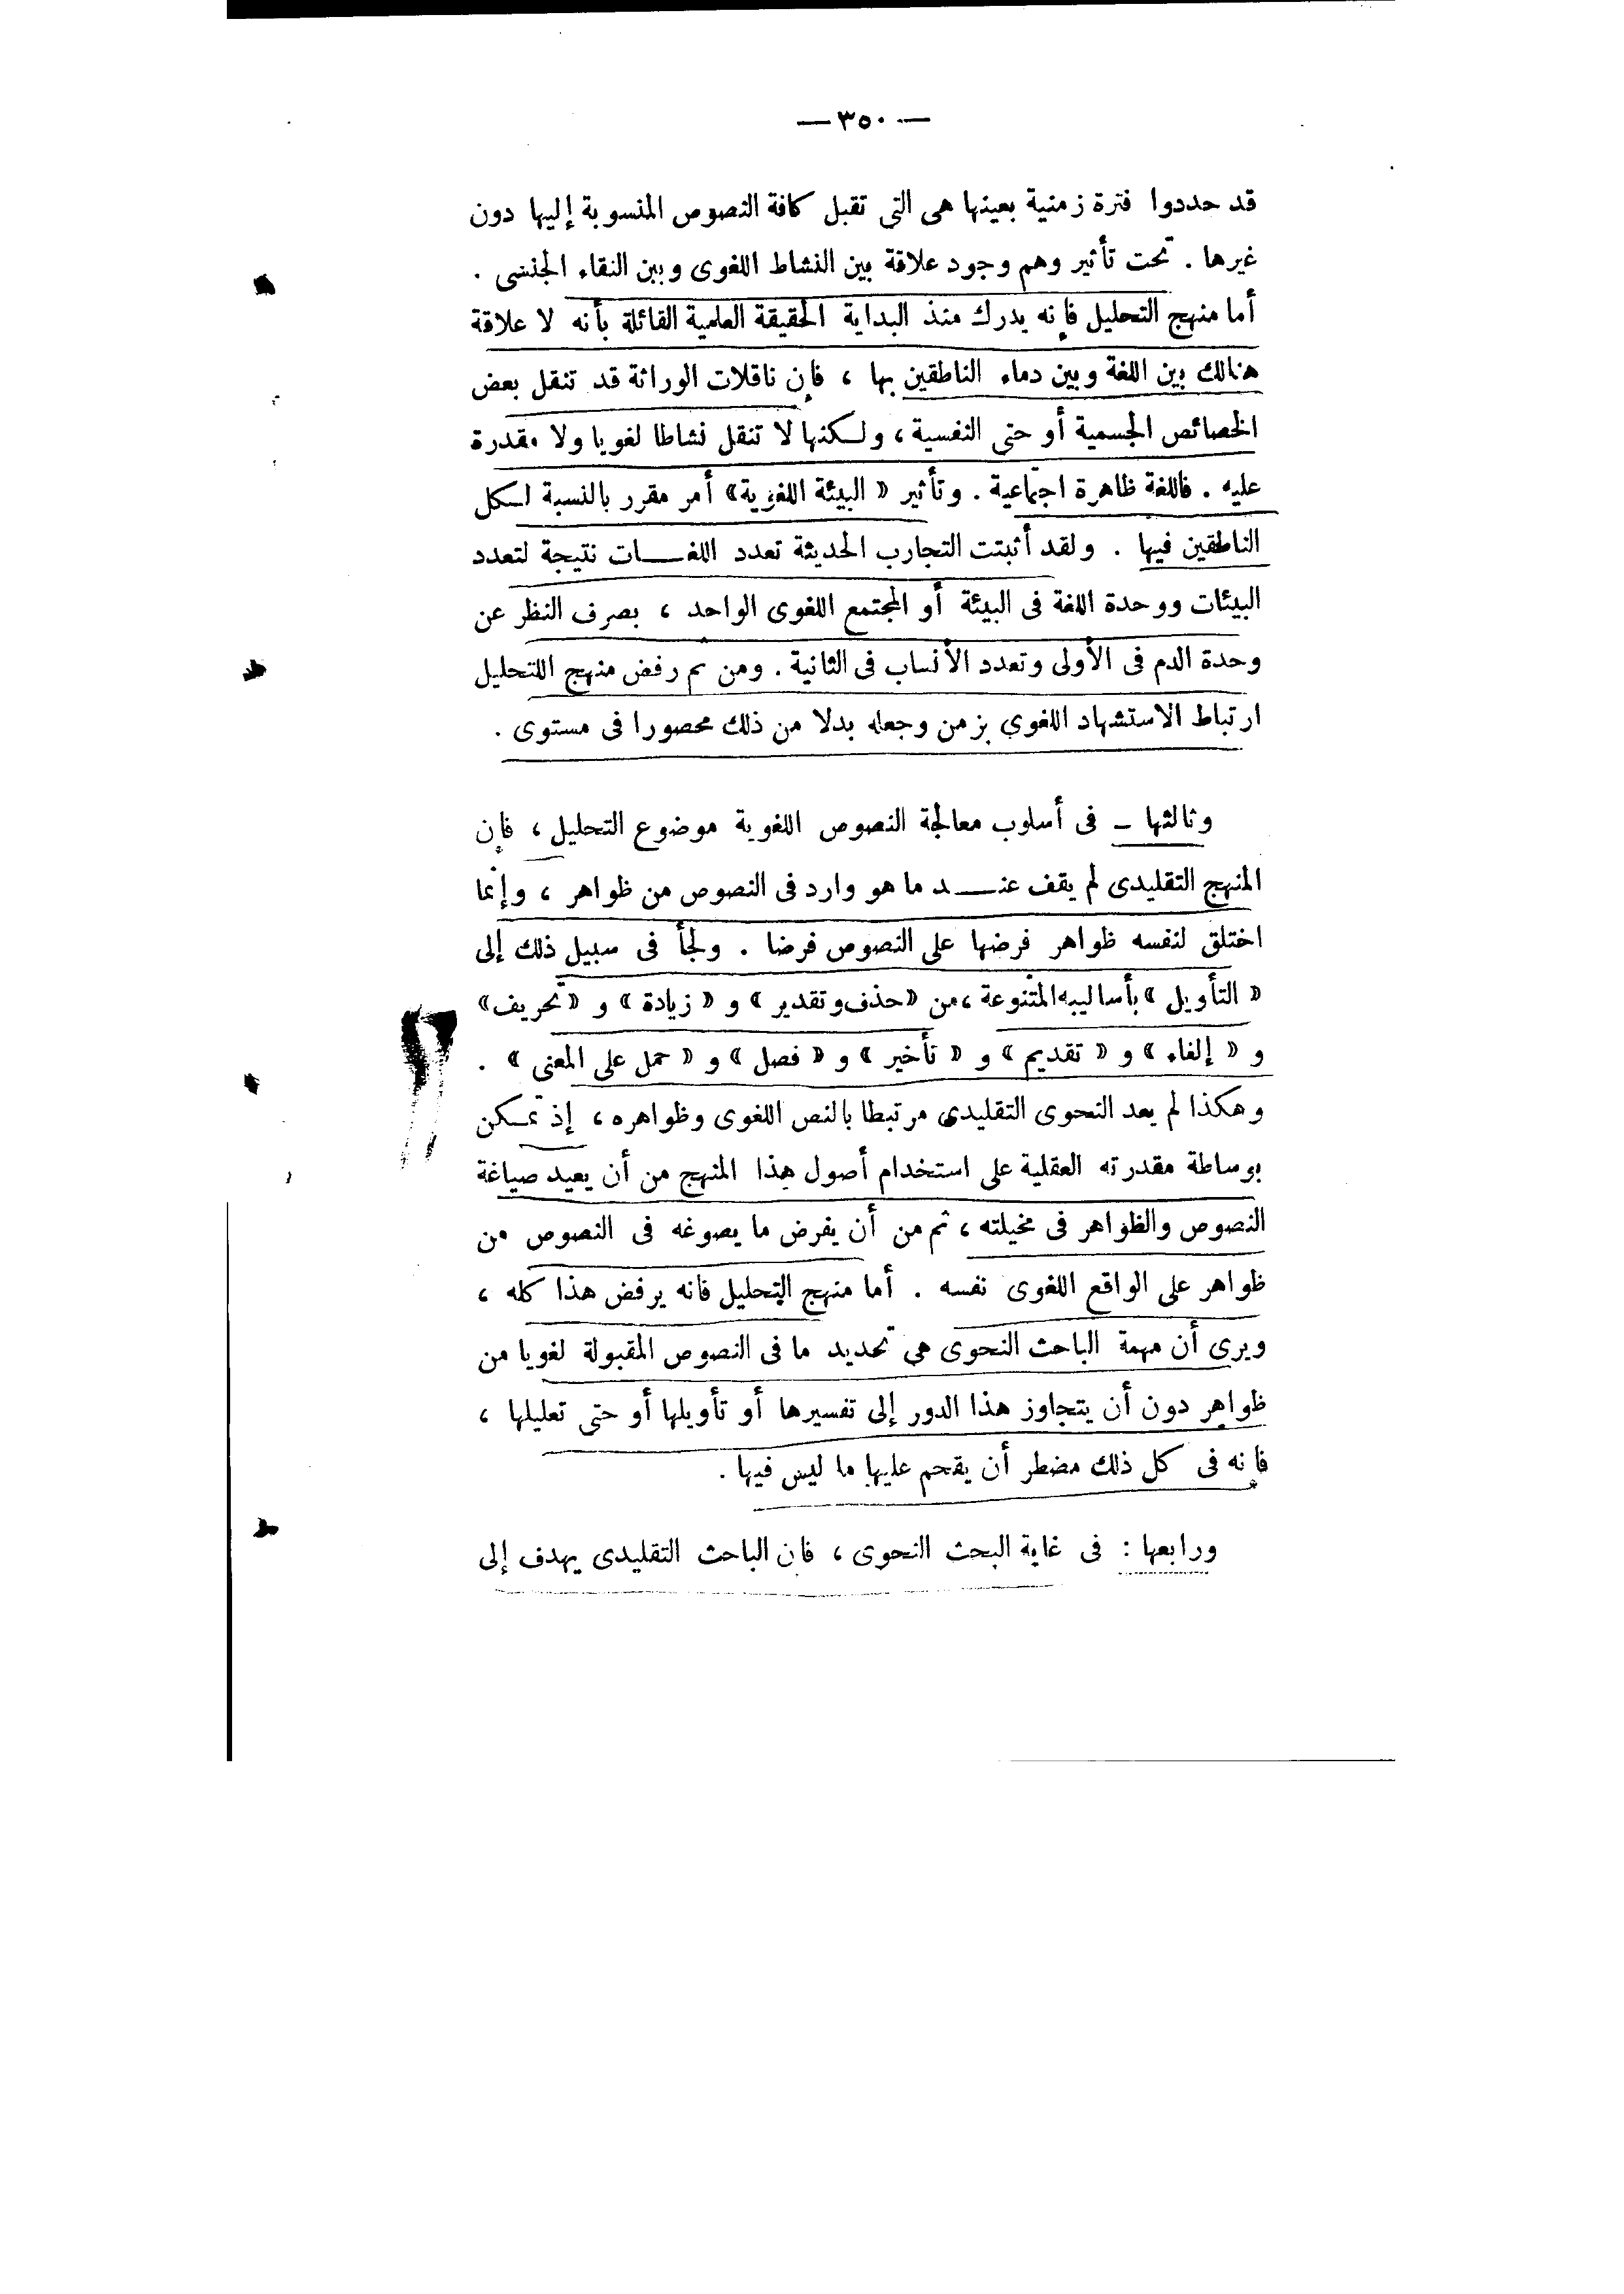 — ٣٥٠ —
قد حددوا فترة زمنية بعينها هى التى تقبل كافة النصوص المنسوبة إليها دون
غيرها . تحت تأثير وهم وجود علاقة بين النشاط اللغوى وبين النقاء الجنسى .
أما منهج التحليل فإنه يدرك منذ البداية الحقيقة العلمية القائلة بأنه لا علاقة
هنالك بين اللغة وبين دماء الناطقين بها ، فإن ناقلات الوراثة قد تنقل بعض
الخصائص الجسمية أو حتى النفسية ، ولكنها لا تنقل نشاطا لغويا ولا مقدرة
عليه . فاللغة ظاهرة اجتماعية . وتأثير « البيئة اللغوية » أمر مقرر بالنسبة لكل
الناطقين فيها . ولقد أثبتت التجارب الحديثة تعدد اللغـــات نتيجة لتعدد
البيئات ووحدة اللغة فى البيئة أو المجتمع اللغوى الواحد ، بصرف النظر عن
وحدة الدم فى الأولى وتعدد الأنساب فى الثانية . ومن ثم رفض منهج التحليل
ارتباط الاستشهاد اللغوى بزمن وجعله بدلا من ذلك محصورا فى مستوى .
وثالثها – فى أسلوب معالجة النصوص اللغوية موضوع التحليل ، فإن
المنهج التقليدى لم يقف عنـــد ما هو وارد فى النصوص من ظواهر ، وإنما
اختلق لنفسه ظواهر فرضها على النصوص فرضا . ولجأ فى سبيل ذلك إلى
« التأويل » بأساليبه المتنوعة ، من « حذف وتقدير » و « زيادة » و « تحريف »
و « إلغاء » و « تقديم » و « تأخير » و « فصل » و « حمل على المعنى » .
وهكذا لم يعد النحوى التقليدى مرتبطا بالنص اللغوى وظواهره ، إذ تمكن
بوساطة مقدرته العقلية على استخدام أصول هذا المنهج من أن يعيد صياغة
النصوص والظواهر فى مخيلته ، ثم من أن يفرض ما يصوغه فى النصوص من
ظواهر على الواقع اللغوى نفسه . أما منهج التحليل فانه يرفض هذا كله ،
ويرى أن مهمة الباحث النحوى هى تحديد ما فى النصوص المقبولة لغويا من
ظواهر دون أن يتجاوز هذا الدور إلى تفسيرها أو تأويلها أو حتى تعليلها ،
فإنه فى كل ذلك مضطر أن يقحم عليها ما ليس فيها .
ورابعها : فى غاية البحث النحوى ، فان الباحث التقليدى يهدف إلى